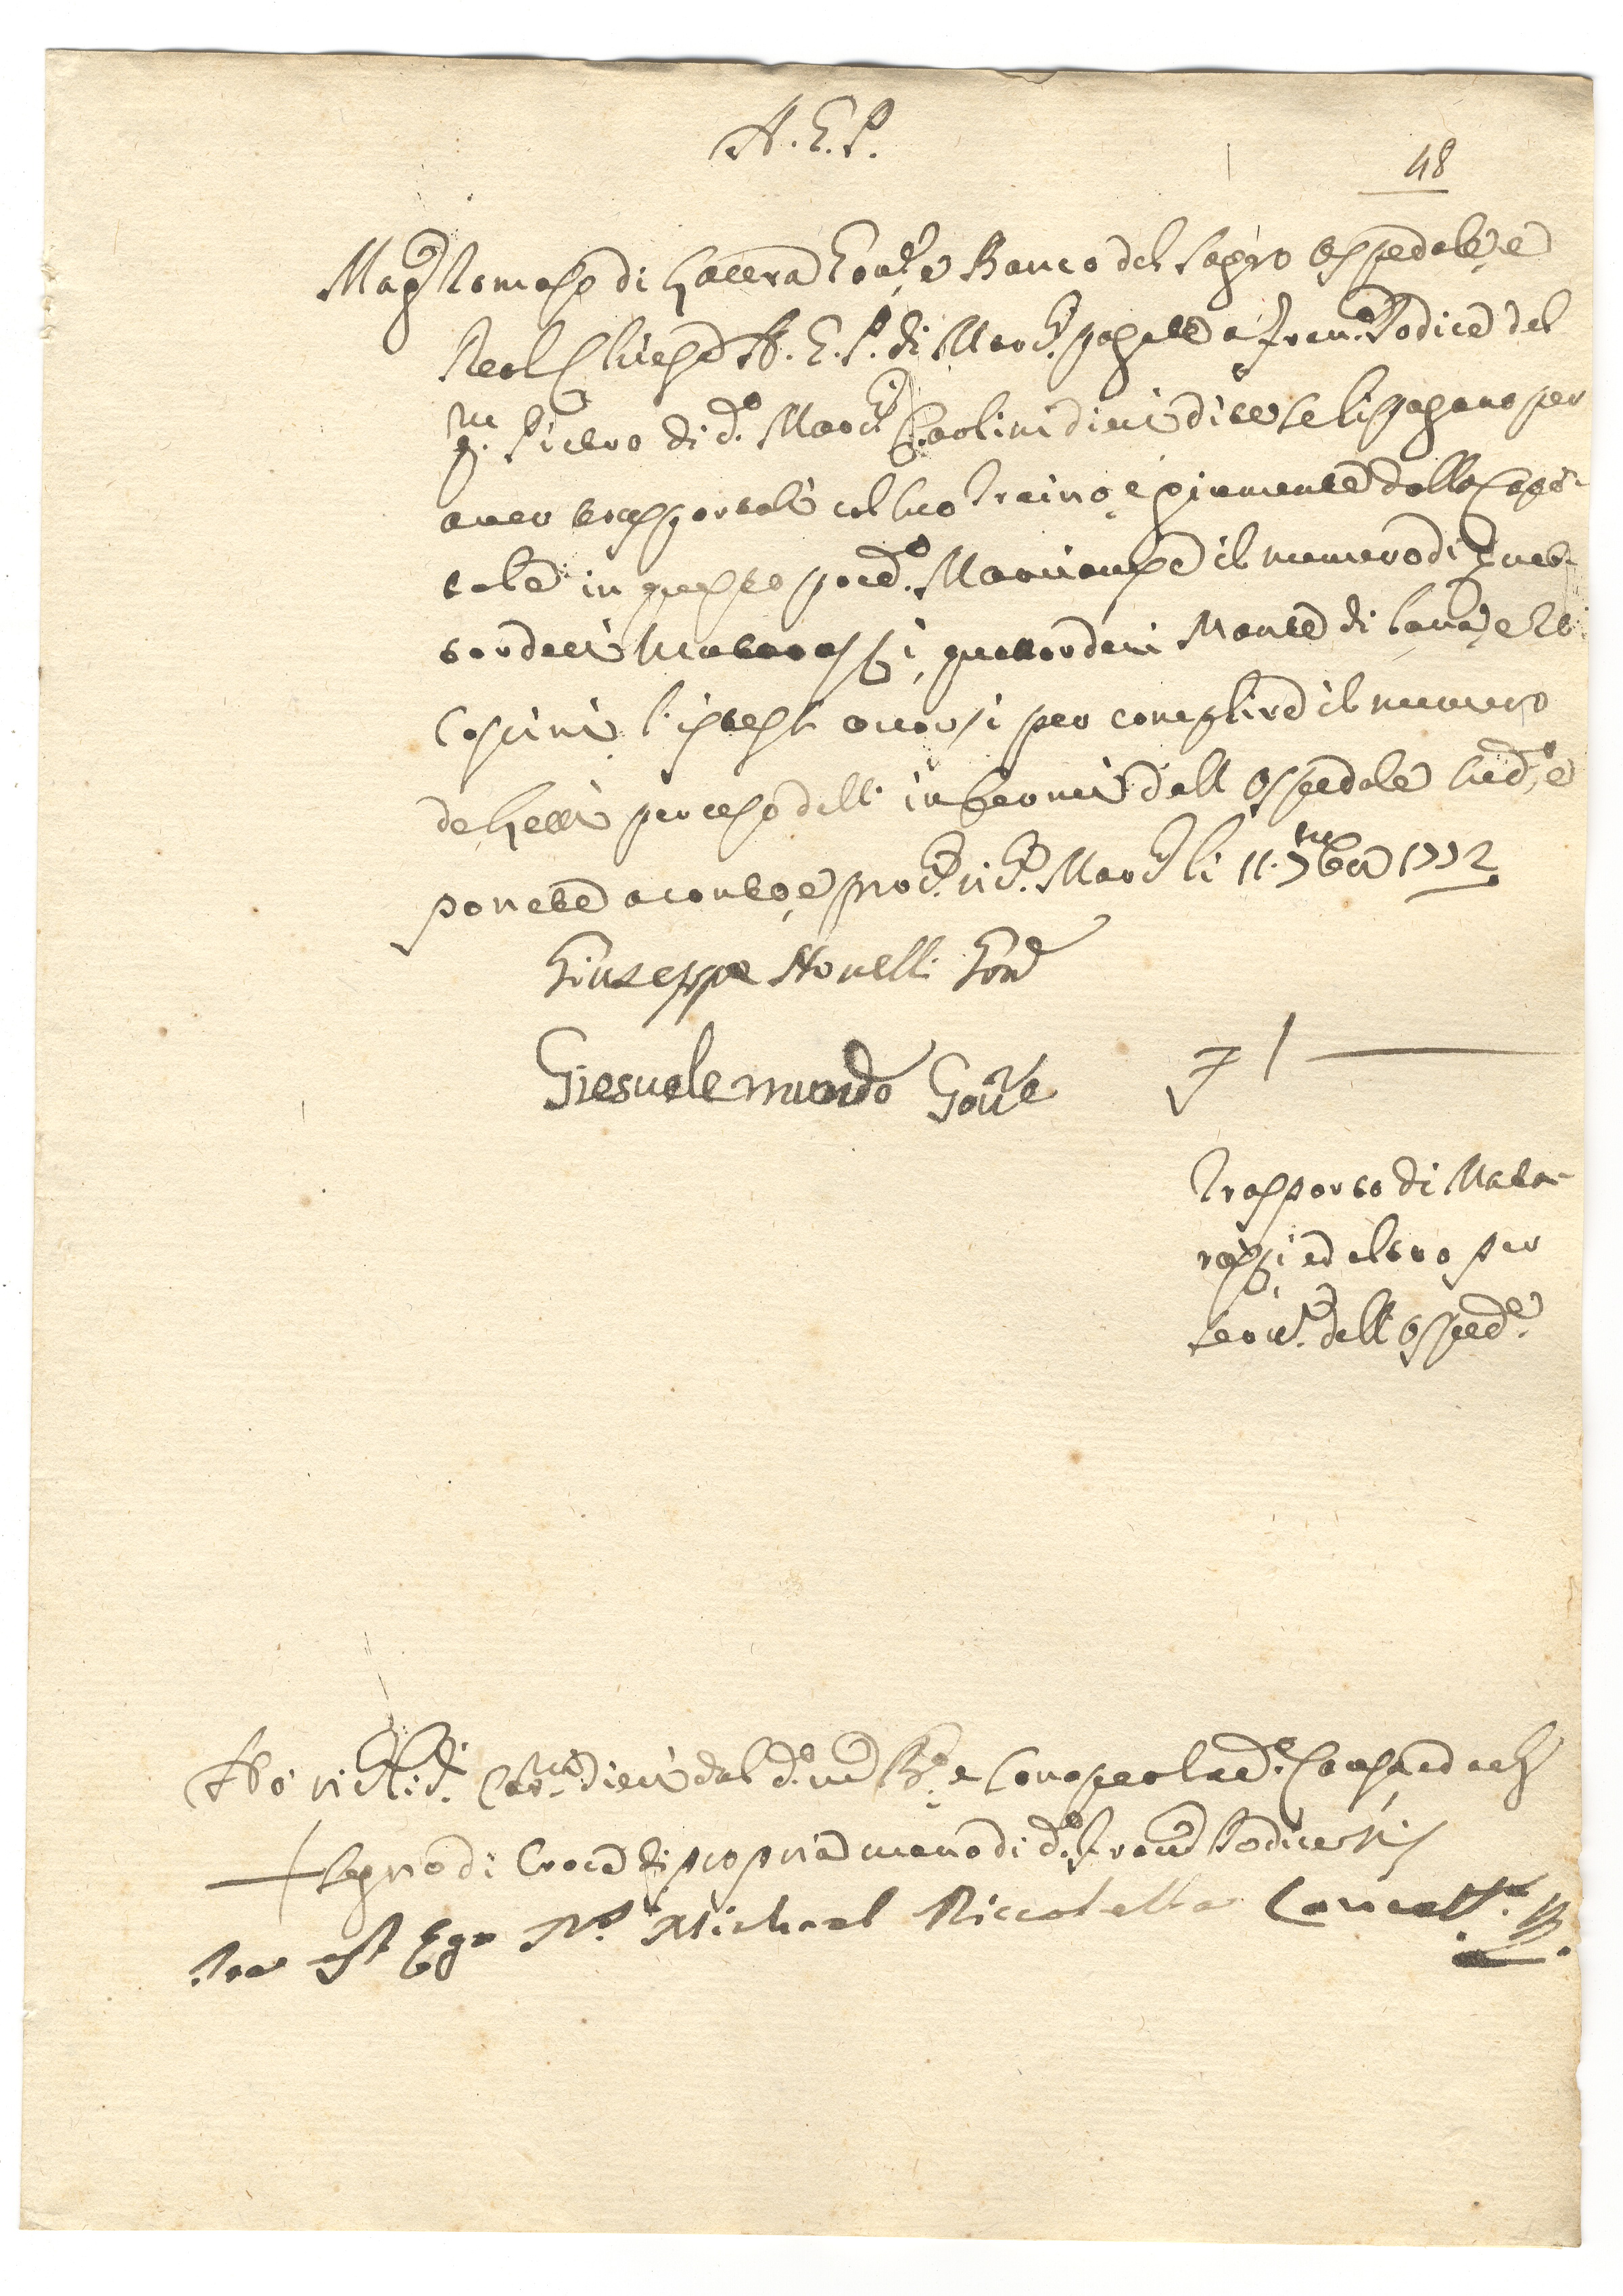 A. G. P.
48
Mag.co Tomaso di Gaeta Gov.re e Banco del Sagro Ospedale, e
Real Chiesa A. G. P. di Mard.i pagate a Fran.co Iodice del
q.m Pietro di d.o Mard.i Carlini dieci dite se li pagano per
aver trasportati col suo Traino, e giumente dalla Capi-
tale in questo pred.o Marcianise il numero di Quat-
tordeci Matarazzi, quattordeci Mante di lana, e
Coscini l'istessi avuti per complire il numero
de letti per uso dell' infermi dell' Ospedale sud.o, e
ponete a conto, e Mard.i li 11. 7mbre 1772
Giuseppe Novelli Gov.re
Giesualemundo Gov.re
7 1
Trasporto di Mata-
razzi ed altro per
serv.o dell' Osped.e
Hò dieci dal d.o B.co e sono per la sud.a Causa, ed
Segno di Croce di propria mano di d.o Fran.co Iodice
Ita est Ego N.r Michael Riccatella Cancell.s